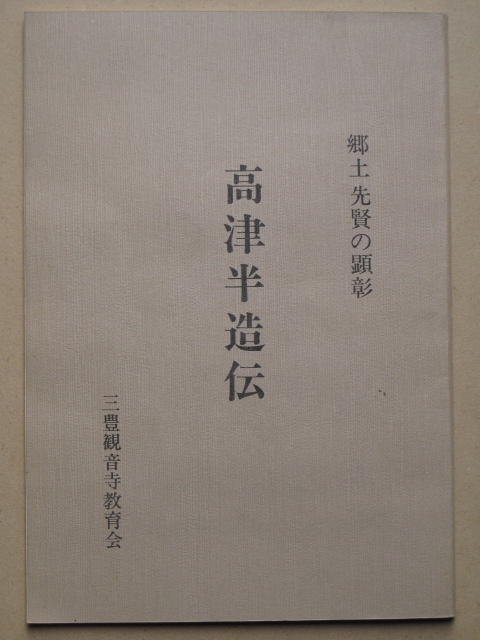 郷土先賢の顕彰
高津半造伝
三豊観音寺教育会